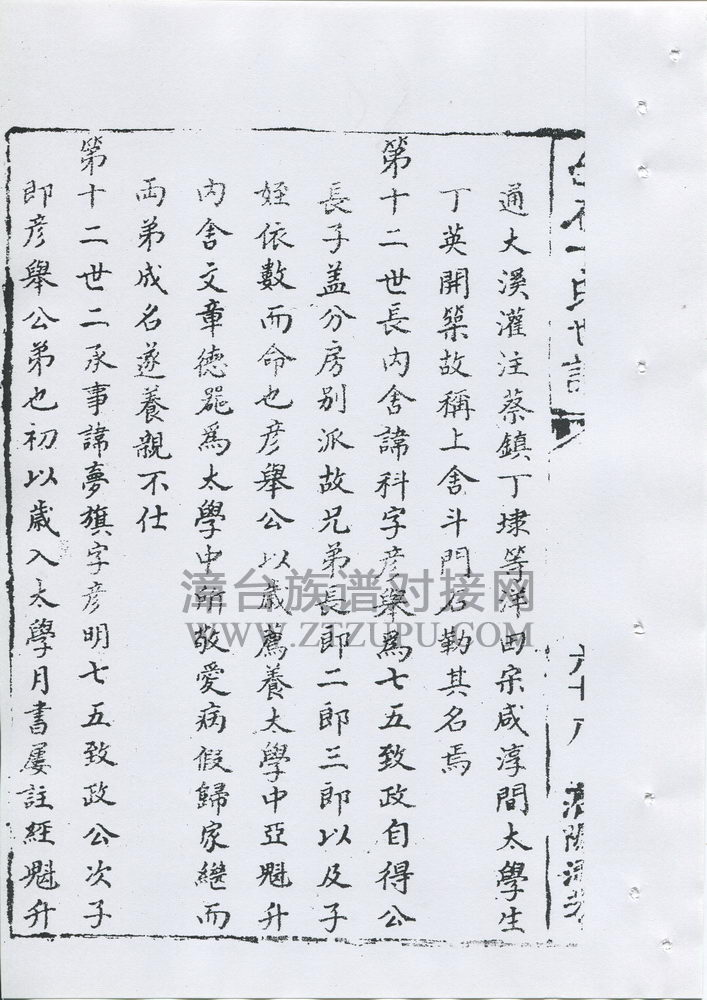 通大溪灌注蔡鎮丁埭等洋田宋咸淳間太學生
丁英開築故稱上舍斗門名勒其名焉
第十二世長內舍諱科字彦舉爲七五致政自得公
長子盖分房别派故兄弟長郎二郎三郎以及子
姪依數而命也彦舉公以歲薦養太學中亞魁升
內舍文章德噐爲太學中所敬愛病假歸家繼而
両弟成名遂養親不仕
第十二世二承事諱夢旗字彦明七五致政公次子
即彦舉公弟也初以歲入太學月書屢註經魁升
六十八
漳台族谱对接网
WWW.ZTZUPU.COM